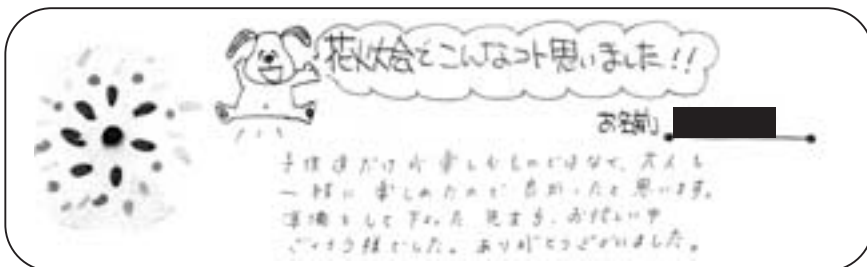 花火大会でこんなコト思いました!!
お名前
子供達だけが楽しむものではなく、大人も
一緒に楽しめたので良かったと思います。
準備をして下さった先生方、お忙しい中
ごくろう様でした。ありがとうございました。